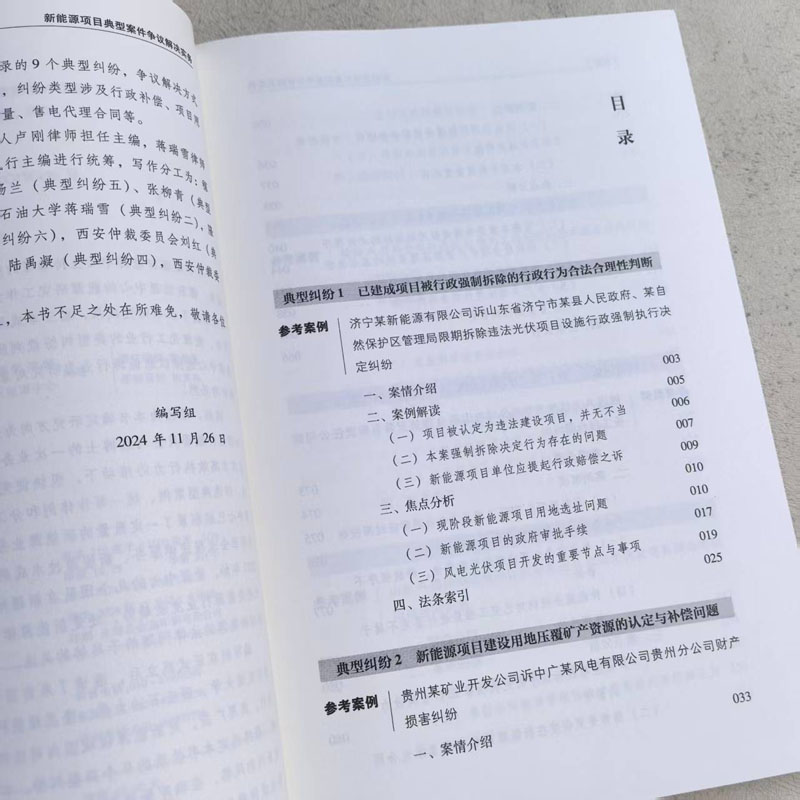 新能源项目典型案件争议解决实务
录的 9 个典型纠纷，争议解决方式
，纠纷类型涉及行政补偿、项目用
量、售电代理合同等。
人卢刚律师担任主编，蒋瑞雪律师
行主编进行统筹，写作分工为：
杨兰（典型纠纷五）、张柳青（典型
石油大学蒋瑞雪（典型纠纷二）、
纠纷六），西安仲裁委员会刘红（典
陆禹凝（典型纠纷四），西安仲裁委
，本书不足之处在所难免，敬请各位
编写组
2024 年 11 月 26 日
目录
典型纠纷 1 已建成项目被行政强制拆除的行政行为合法合理性判断
参考案例 济宁某新能源有限公司诉山东省济宁市某县人民政府、某自
然保护区管理局限期拆除违法光伏项目设施行政强制执行决
定纠纷
一、案情介绍 003
二、案例解读 005
（一）项目被认定为违法建设项目，并无不当 006
（二）本案强制拆除决定行为存在的问题 007
（三）新能源项目单位应提起行政赔偿之诉 009
三、焦点分析 010
（一）现阶段新能源项目用地选址问题 010
（二）新能源项目的政府审批手续 017
（三）风电光伏项目开发的重要节点与事项 019
四、法条索引 025
典型纠纷 2 新能源项目建设用地压覆矿产资源的认定与补偿问题
参考案例 贵州某矿业开发公司诉中广某风电有限公司贵州分公司财产
损害纠纷
一、案情介绍 033